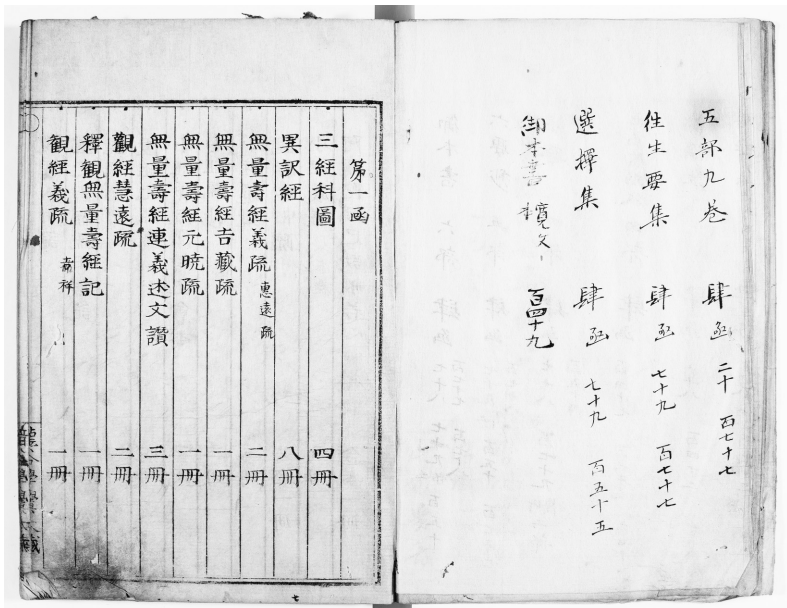 五部九巻 肆函 二十 百七十七
往生要集 肆函 七十九 百七十七
選擇集 肆函 七十九 百五十五
御本書 百四十九
第一函
三經科圖 四冊
異訳經 八冊
無量壽經義疏 惠遠疏 二冊
無量壽經吉藏疏 一冊
無量壽經元暁疏 一冊
無量壽經連義述文讃 三冊
觀經慧遠疏 二冊
釋観無量壽經記 一冊
観經義疏 嘉祥 一冊